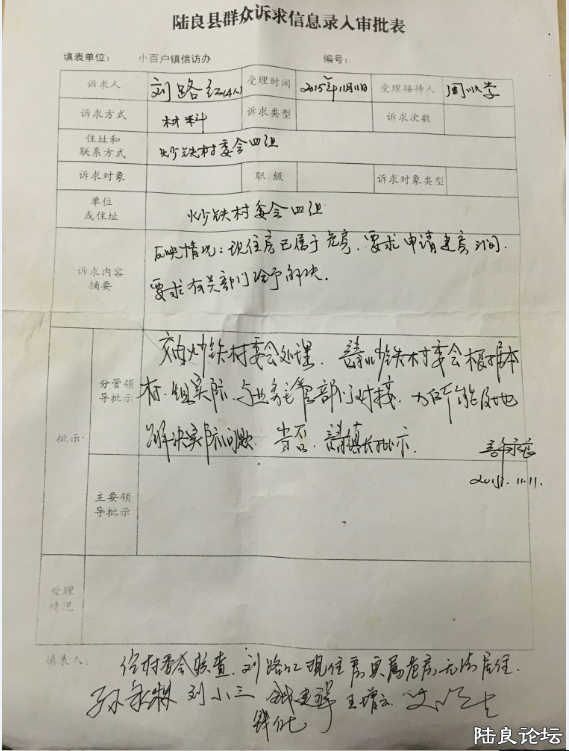 陆良县群众诉求信息录入审批表
填表单位： 小百户镇信访办 编号：
诉求人 刘路红(4人) 受理时间 2015年11月11日 受理接待人 周
诉求方式 材料 诉求类型 诉求次数
住址和
联系方式 炒铁村委会四组
诉求对象 职级 诉求对象类型
单位
或住址 炒铁村委会四组
诉求内容
摘要
反映情况：现住房已属于危房，要求申请建房
要求有关部门给予解决。
批示
分管领
导批示
交由炒铁村委会处理。请炒铁村委会根据本
村、组实际，与业务主管部门对接，力所能及地
解决实际问题。当否，请镇长批示。
2015.11.11.
主要领
导批示
处理
情况
填表人：
住村委会核查，刘路红现住房实属危房无法居住.
孙 刘小三
陆良论坛